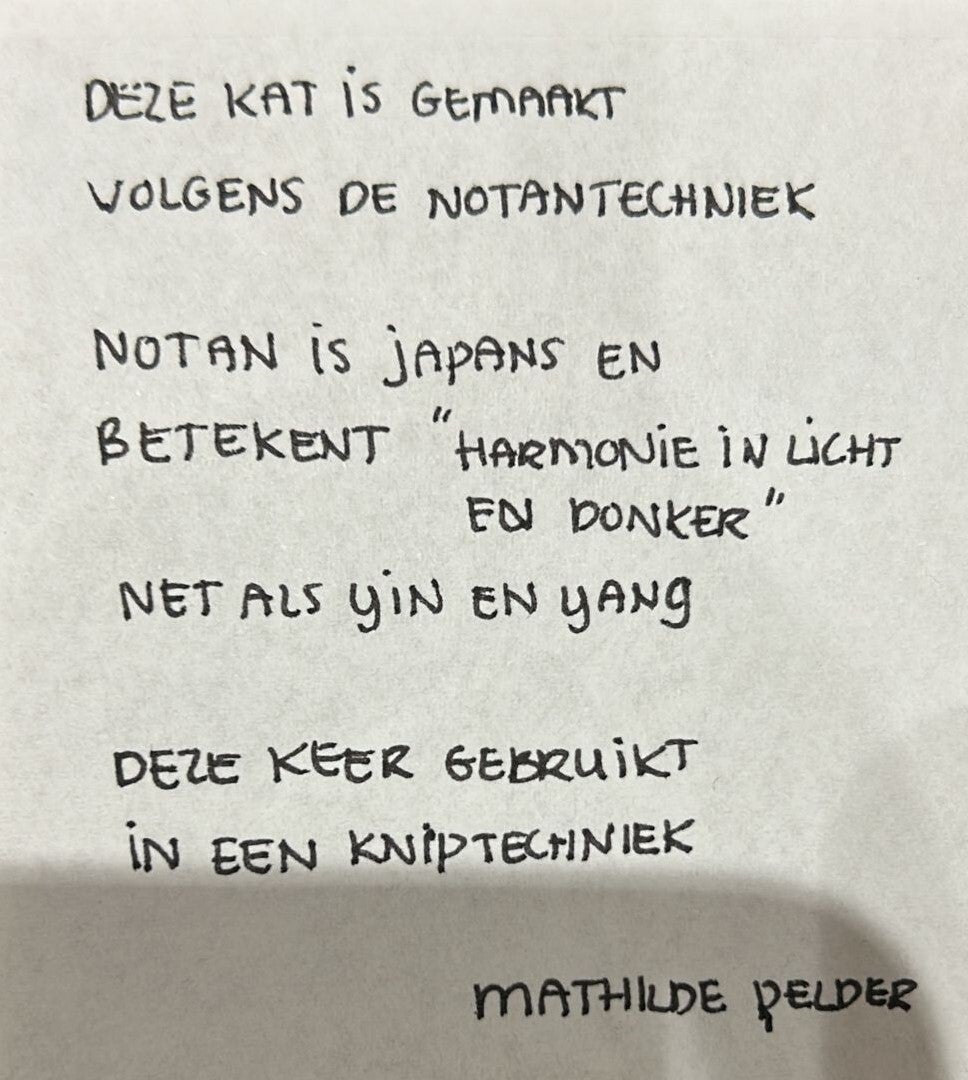 DEZE KAT iS GEMAAKT
VOLGENS DE NOTANTECHNIEK
NOTAN iS jAPANS EN
BETEKENT "HARMONiE iN LiCHT
EN DONKER"
NET ALS YiN EN YANG
DEZE KEER GEBRUiKT
iN EEN KNiPTECHNIEK
MATHILDE PELDER